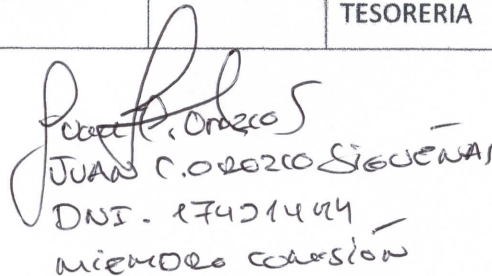 TESORERIA
Juan C. Orozco S
JUAN C. OROZCO SIGUEÑAS
DNI -
MIEMBRO COMISIÓN